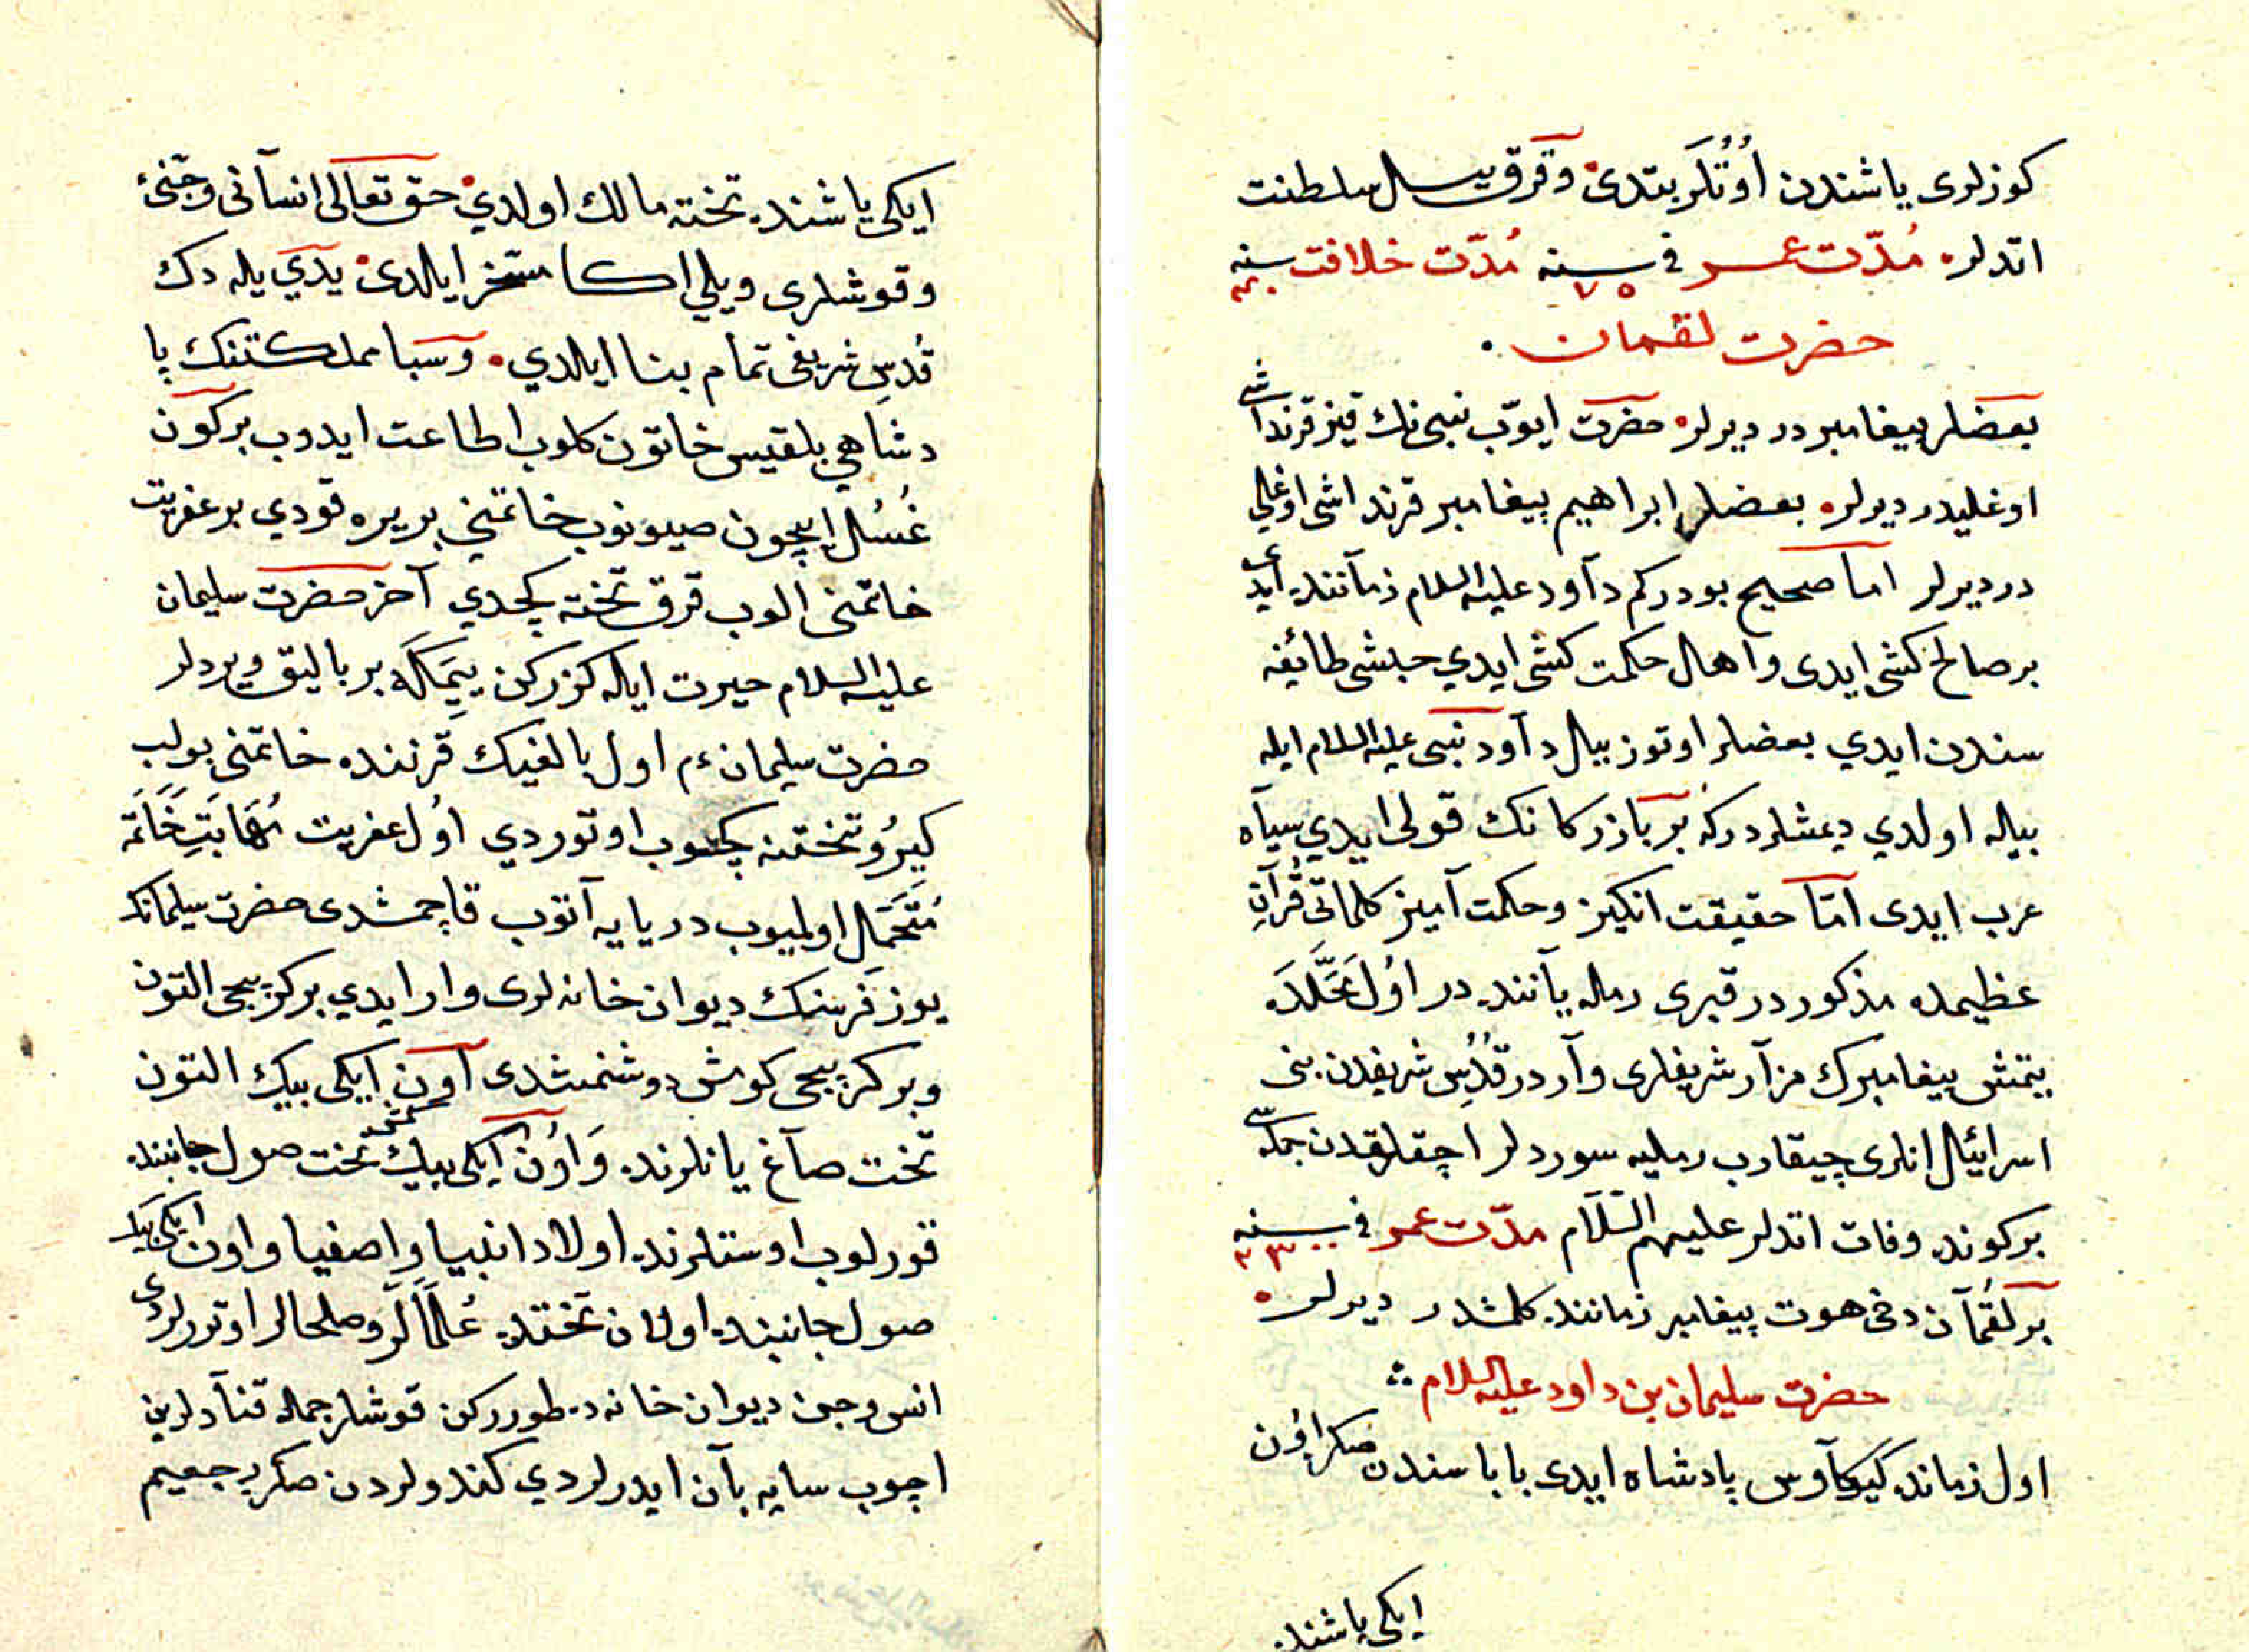 كوزلری ياشندن اوُتُلَر بتدی وقرق ييل سلطنت
اتدلر مُدّت عمر فی سنه ٧٥ مُدّت خلافت سنه ٤٠
حضرت لقمان
بعضلر پيغامبر در ديرلر حضرت ايوّب نبی نك قيز قرنداشی
اوغليدر ديرلر بعضلر ابراهيم پيغامبر قرنداشی اوغلی
در ديرلر اما صحيح بودركم دآود عليه السلام زمآننده ايدی
بر صالح كشی ايدی واهل حكمت كشی ايدي حبشی طائيفه
سندن ايدي بعضلر اوتوز ييل دآود نبی عليه السلام ايله
بيله اولدي ديمشلردركه بر بازركانك قولی ايدي سيآه
عرب ايدی امّا حقيقت انكيز وحكمت آميز كلماتی قُرآنِ
عظيمده مذكور در قبری رمله ياننده در اوُل مَحَلّدَه
يتمش پيغامبرك مزآر شريفلری وآر در قُدُسِ شريفدن بنی
اسرائيل انلری چيقارب رمليه سوردلر اچقلقدن جمله سی
بر كونده وفات اتدلر عليهم السّلآم مدّت عمر فی سنه
بر لقُمآن دخی هوت پيغامبر زماننده كلمشدر ديرلر
حضرت سليمان بن داود عليه السلام
اول زمانده كيوكآوس پادشاه ايدی باباسندن صكره اوُن
ايكی ياشنده
ايكی ياشنده تخته مالك اولدي حق تعالی انسآنی وجنّی
وقوشلری ويلي اكا مسخّر ايلدی يدي ييله دك
قُدسِ شريفی تمام بنا ايلدي وسبا مملكتنك پا
دشاهي بلقيس خاتون كلوب اطاعت ايدوب بر كون
غُسُل ايچون صيونوب خاتمنی بر يره قودي بر عفريت
خاتمنی الوب قرق تخته كچدي آخر حضرت سليمان
عليه السلام حيرت ايله كزركن ييمَكلَه بر باليق ويردلر
حضرت سليمان ءم اول بالغيك قرننده خاتمنی بولب
كيرُو تختنه كچوب اوتوردي اوُل عفريت مُهَابَتِ خَاتَمَه
مُتَحَمّل اولميوب دريايه آتوب قاچمشدی حضرت سليمانك
يوز فرسنك ديوان خانه لری وار ايدي بر كرپيچی التون
وبر كرپيچی كومش دوشنمشدی اون ايكی بيك التون
تخت صآغ يانلرنده وَاوُن ايكی بيك كمش تخت صول جانبنده
قورلوب اوستلرنده اولاد انبيا واصفيا واون ايكی بيك
صول جانبنده اولان تختده عُلَمآلَر وصلحالر اوتورلردی
انس وجن ديوان خانه ده طورركن قوشلر جمله قنآدلرين
اچوب سايه بآن ايدرلردي كندولردن صكره رجعيم